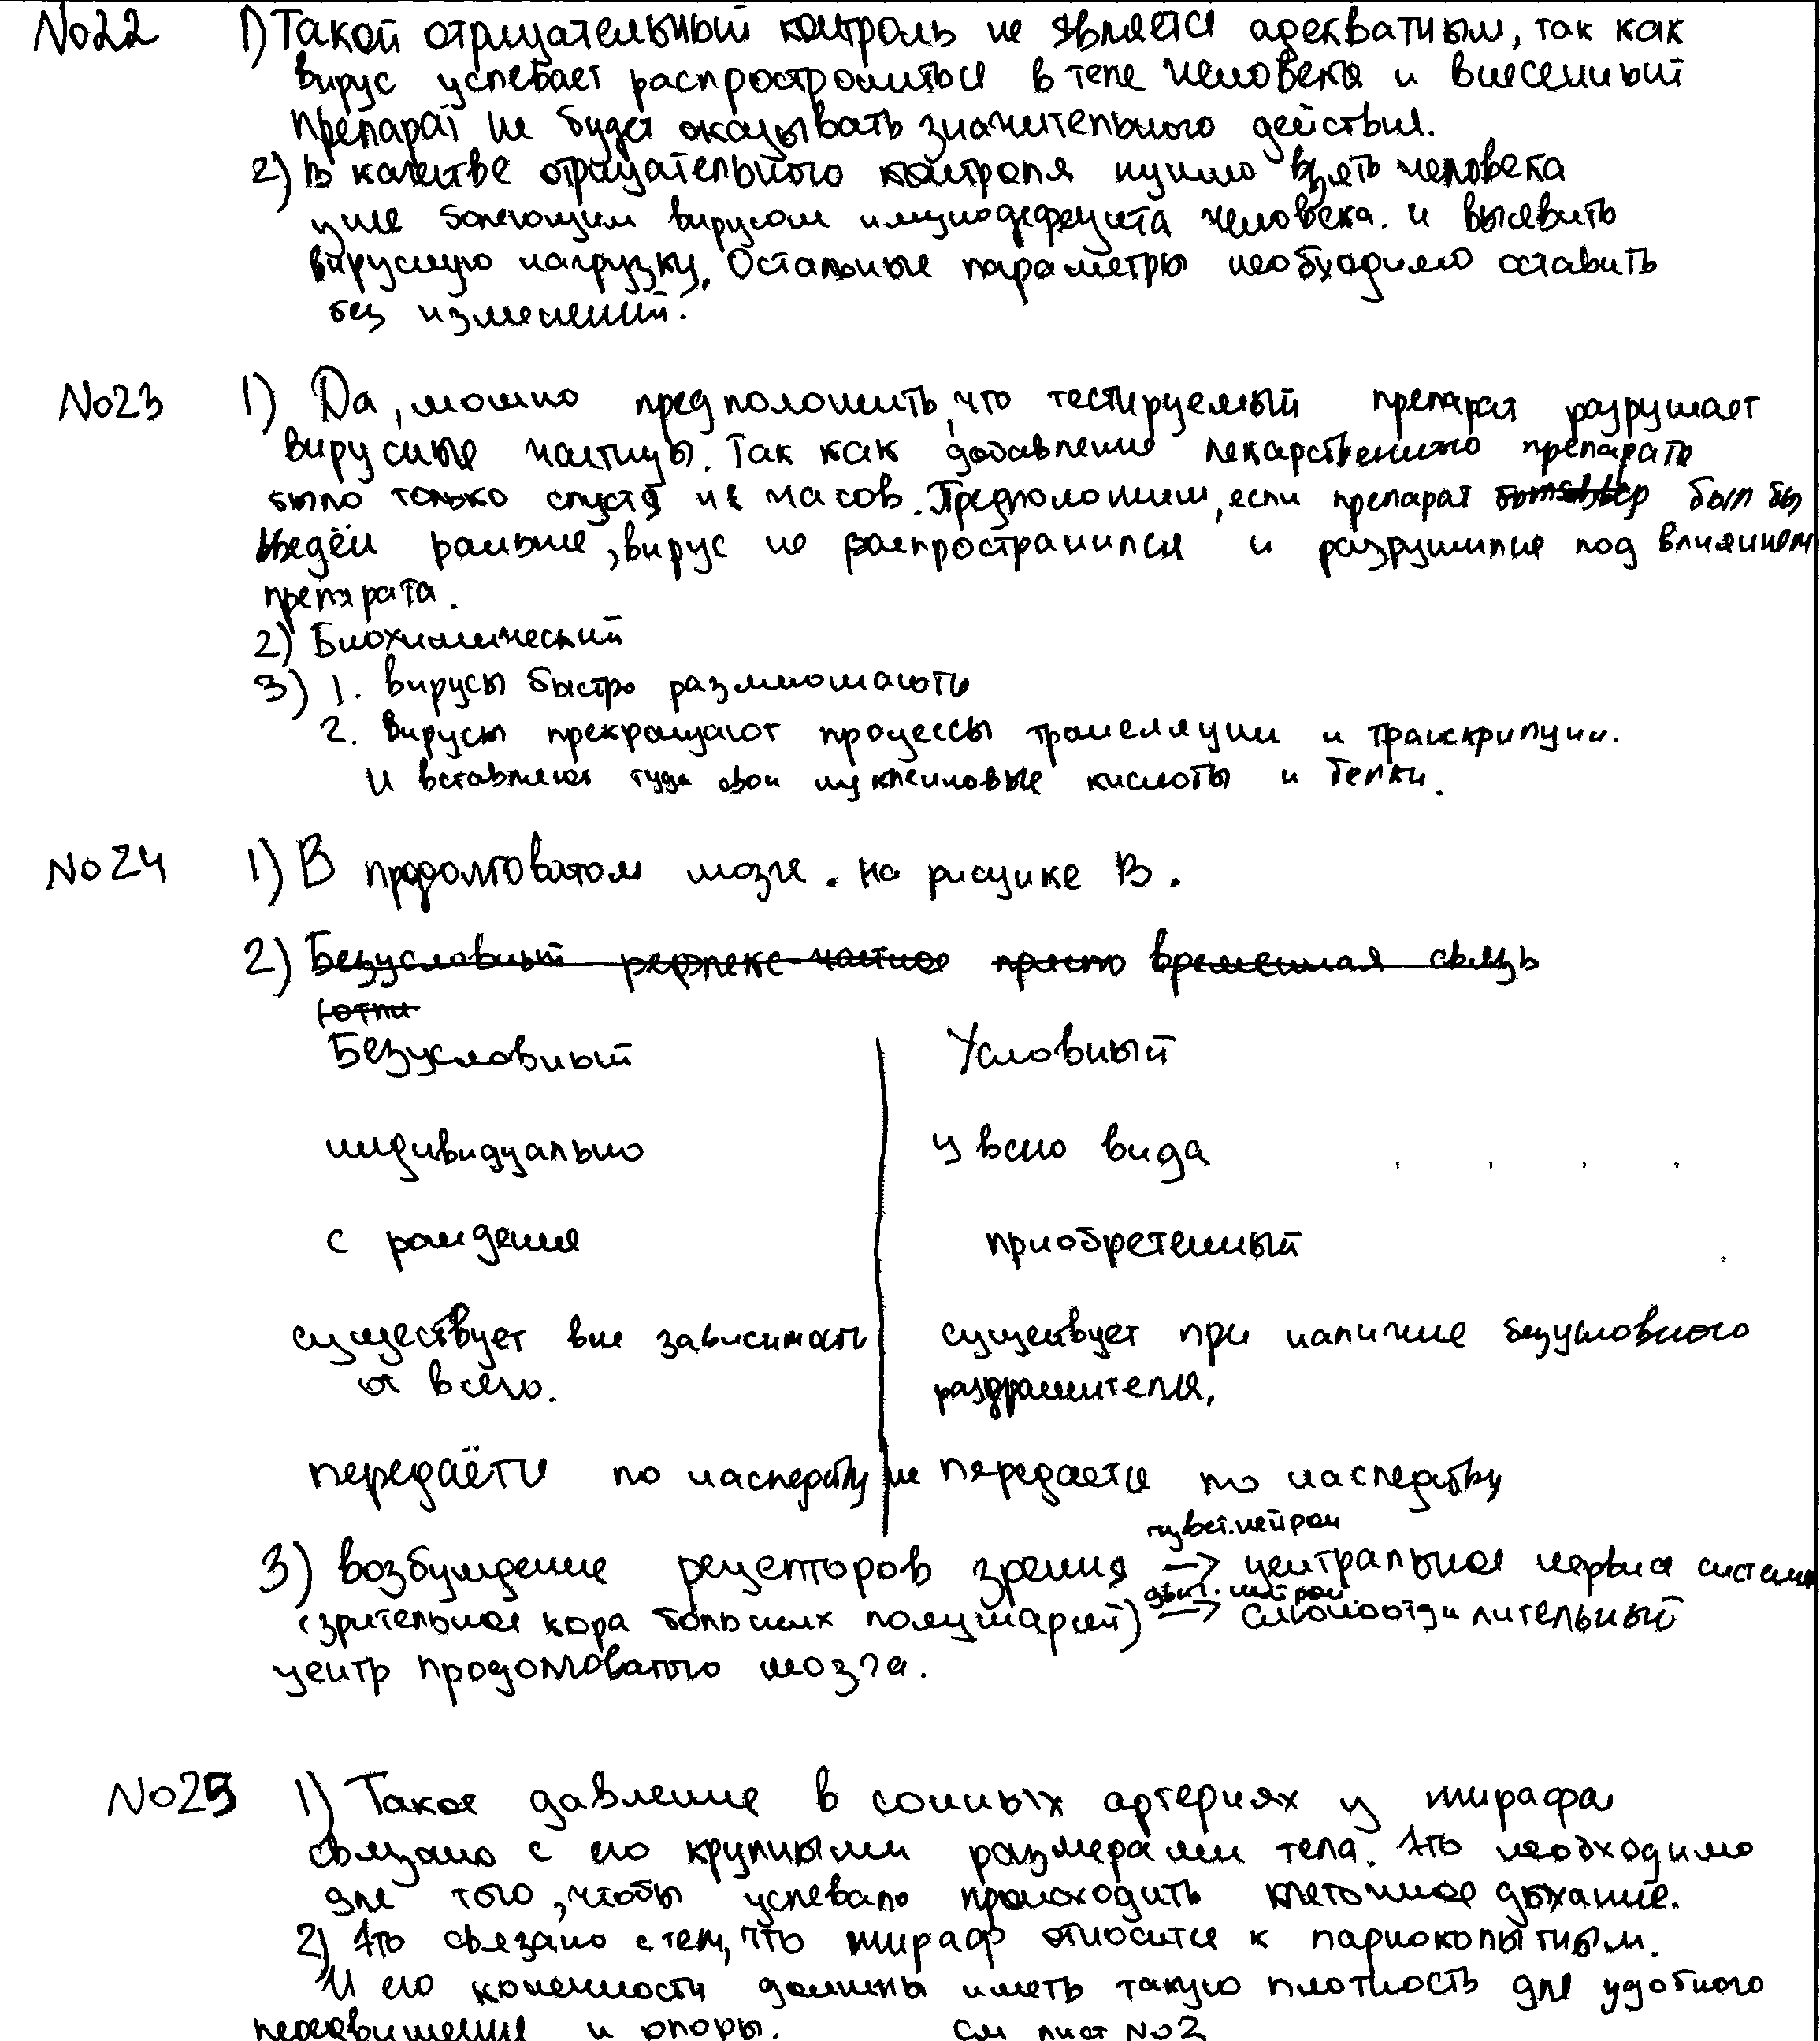 No22 1) Такой отрицательный контроль не является адекватным, так как
вирус успевает распространиться в теле человека и внесенный
препарат не будет оказывать значительного действия.
2) В качестве отрицательного контроля нужно взять человека
уже болеющим вирусом имунодефецита человека. и выявить
вирусную нагрузку. Остальные параметры необходимо оставить
без изменений.
No23 1) Да, можно предположить, что тестируемый препарат разрушает
вирусные частицы. Так как добавление лекарственного препарата
было только спустя часов. Предположим, если препарат был бы
введён раньше, вирус не распространился и разрушился под влиянием
препарата.
2) Биохимический
3) 1. вирусы быстро размножаються
2. Вирусы прекращают процессы трансляции и транскрипции.
И вставляют туда свои нуклеиновые кислоты и белки.
No24 1) В продолговатом мозге. на рисунке В.
2) Безусловный рефлекс частное просто временная связь
Безусловный Условный
индивидуально у всего вида
с рождения приобретенный
существует вне зависимости существует при наличие безусловного
от всего. раздражителя.
передаётся по наследству не передается по наследству
чувст. нейрон
3) возбуждение рецепторов зрения → центральная нервная система
двиг. нейрон
(зрительная кора больших полушарий) → слюноотделительный
центр продолговатого мозга.
No25 1) Такое давление в сонных артериях у жирафа
связано с его крупными размерами тела. Это необходимо
для того, чтобы успевало происходить клеточное дыхание.
2) Это связано с тем, что жираф относится к парнокопытным.
И его конечности должны иметь такую плотность для удобного
передвижения и опоры. См лист No2